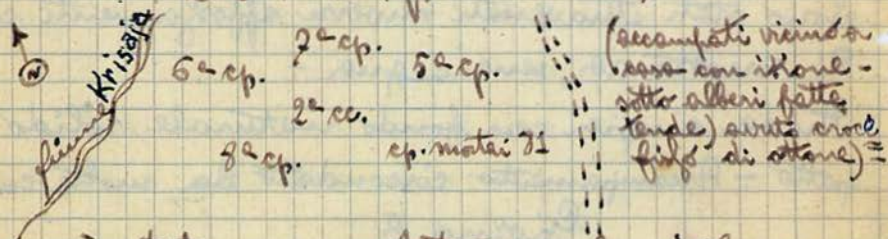 N
fiume Krisaja
7ª cp.
6ª cp.
5ª cp.
2ª cc.
8ª cp.
cp. mortai 81
(accampati vicino a
casa con
sotto alberi fatte
tende) avuta croce
di ottone)